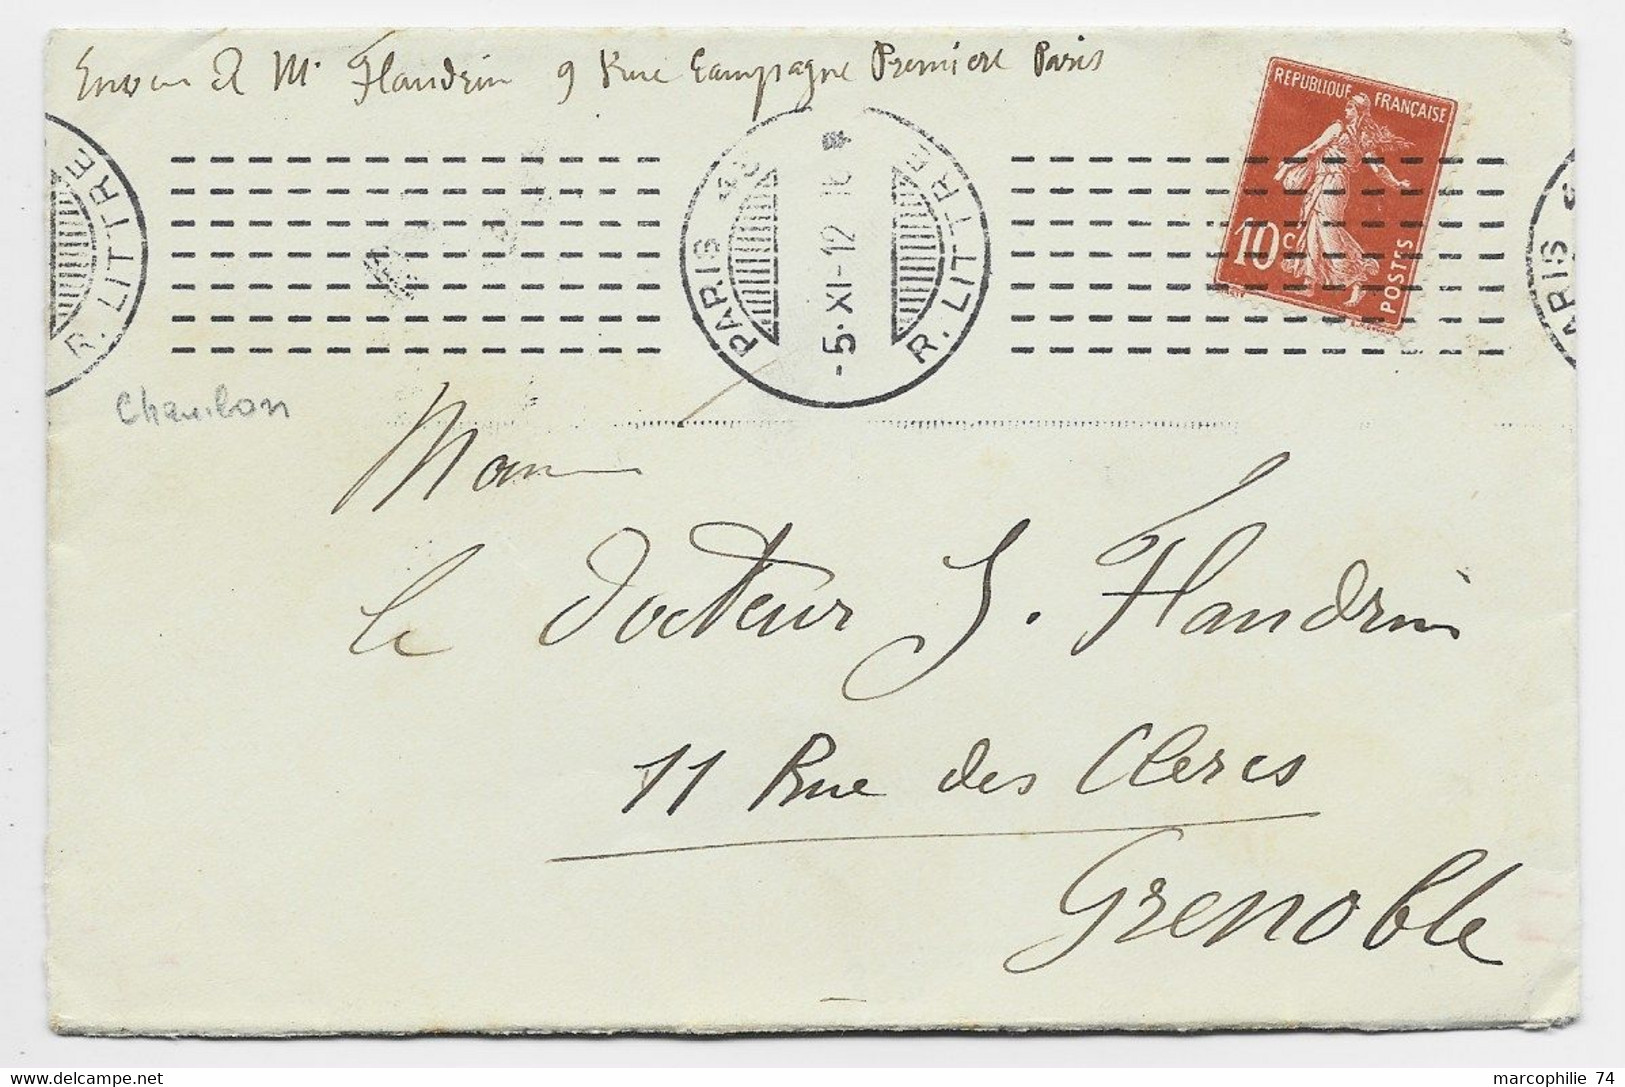 Envoi d M. Flandrin 9 Rue Campagne Première Paris
RÉPUBLIQUE FRANÇAISE
10c
POSTES
R. LITTRE
PARIS
-5·XI-12
R. LITTRE
PARIS
le Docteur J. Flandrin
11 Rue des Clercs
Grenoble
marcophilie 74